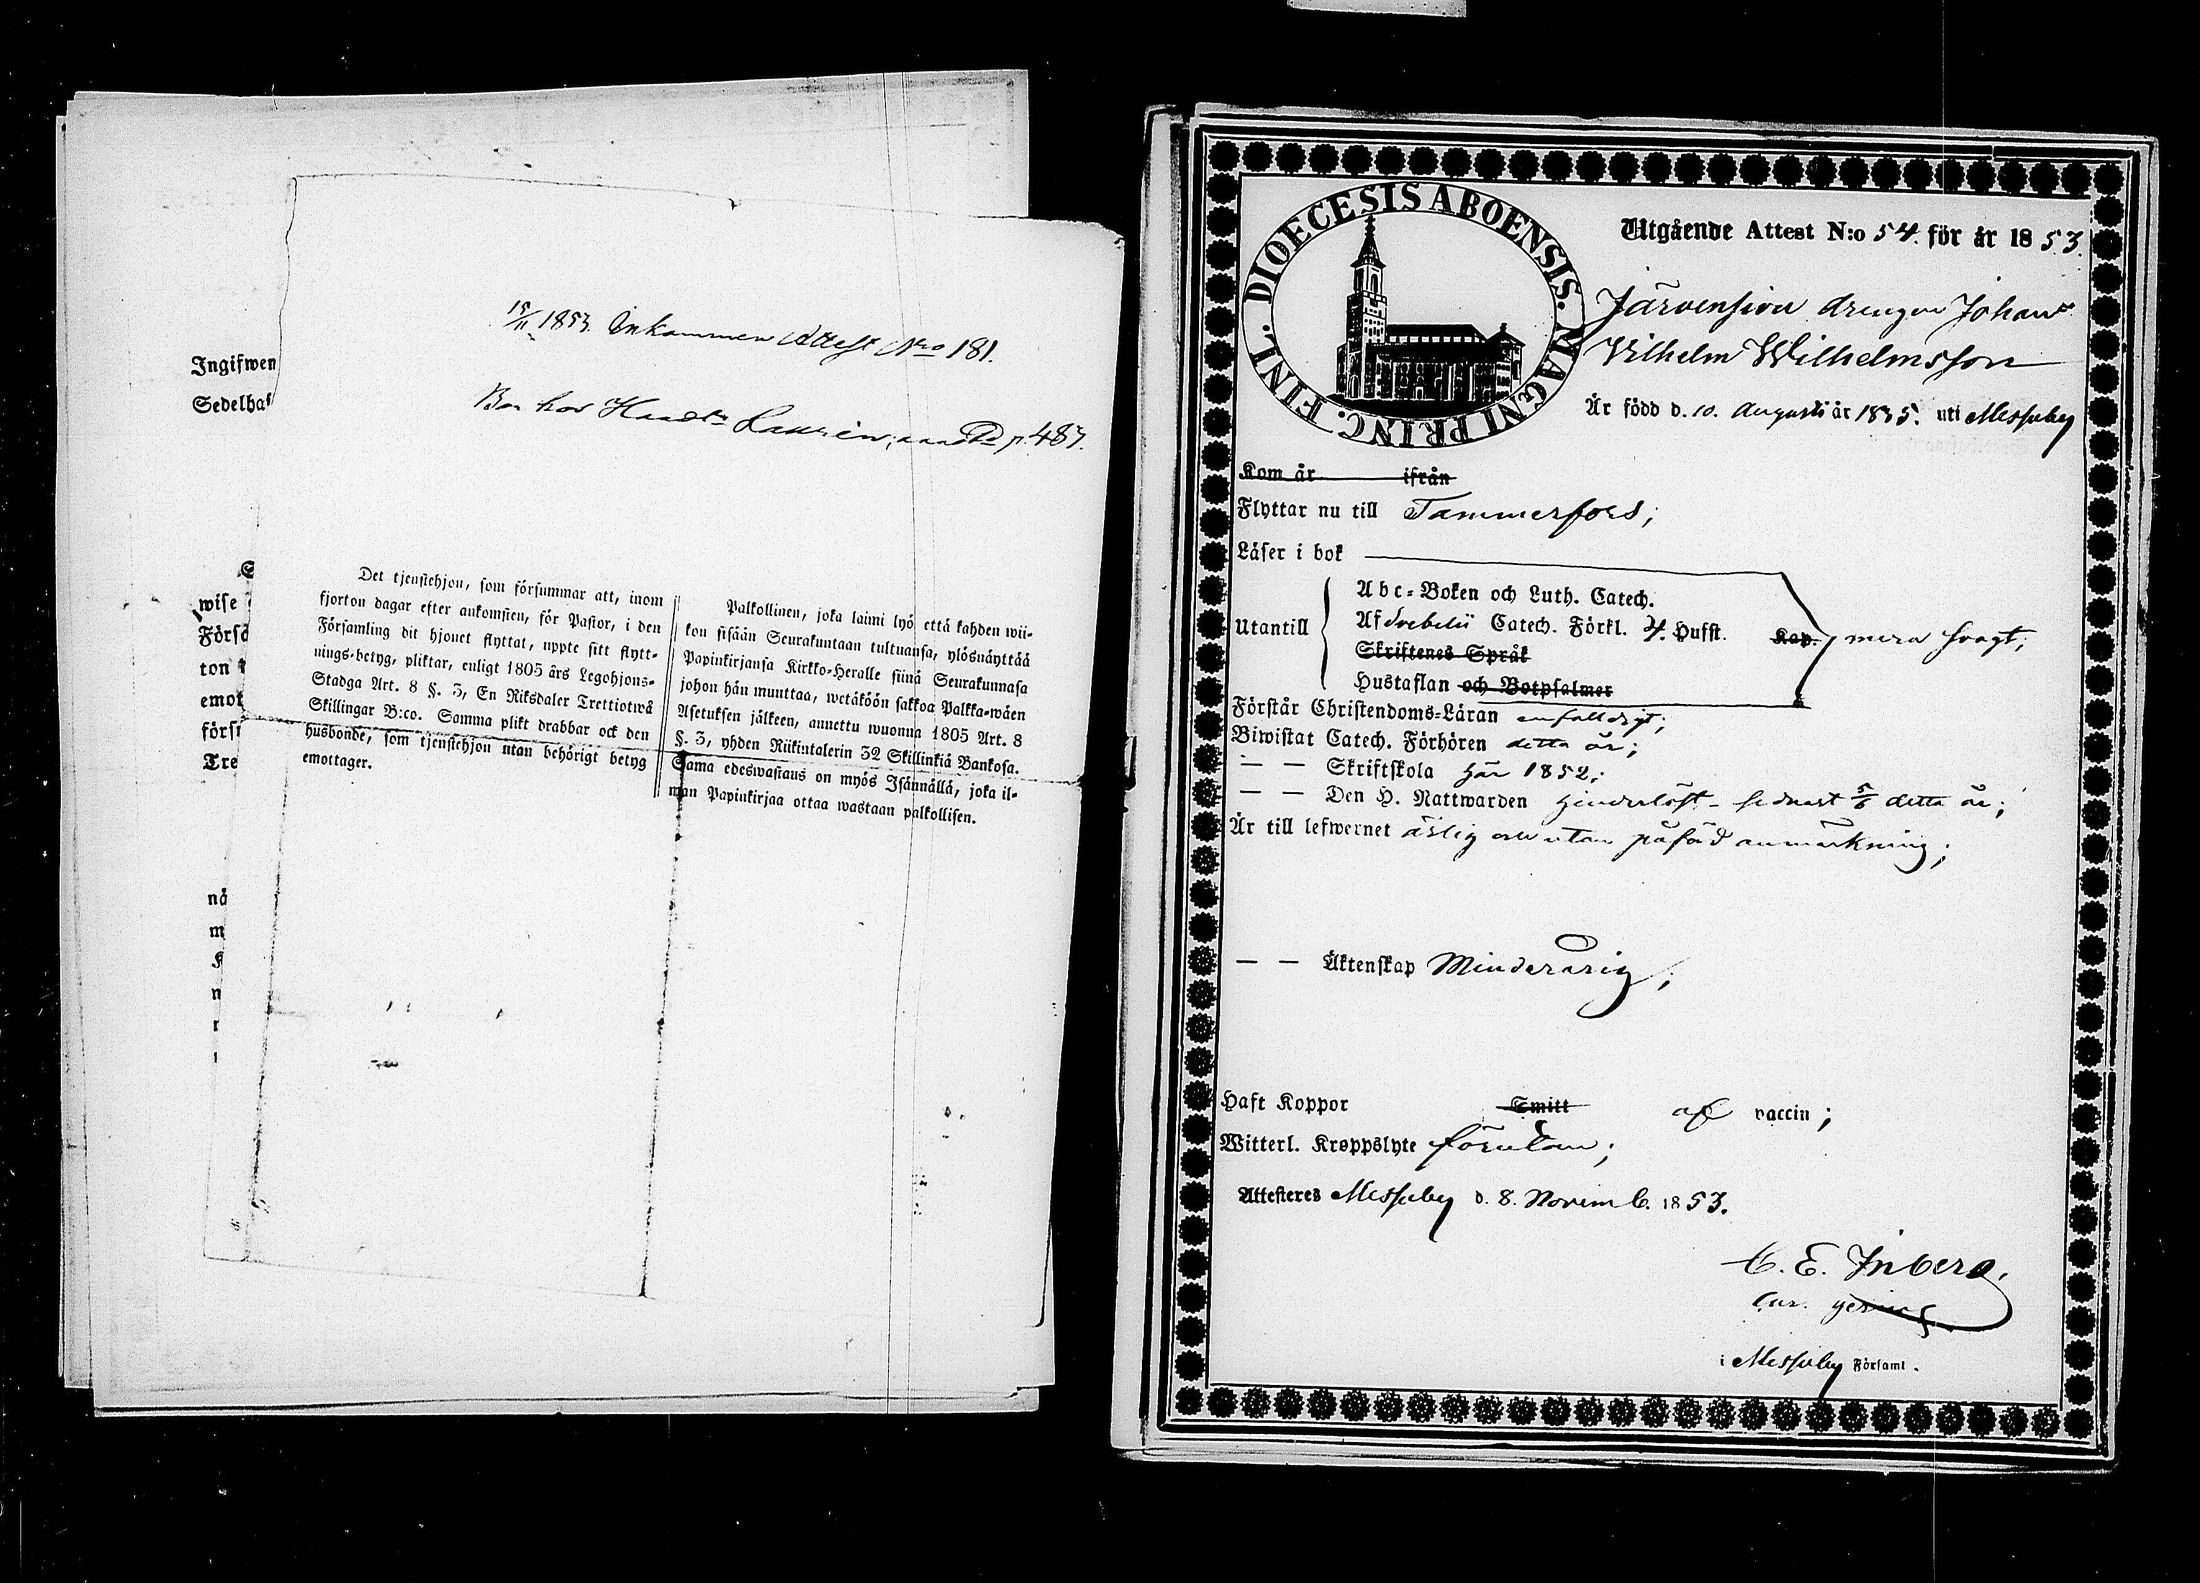 Ingifwen
Sedelha
wise
Förså
ton
emot
förs
Tre
nå
m
n
15/11 1853. Inkommen Attest Nro 181.
Bor hos Handl. Laurén, p. 483.
Det tjenstehjon, som försummar att, inom
fjorton dagar efter ankomsten, för Pastor, i den
Församling dit hjonet flyttat, uppte sitt flytt-
nings-betyg, pliktar, enligt 1805 års Legohjons-
Stadga Art. 8 §. 3, En Riksdaler Trettiotwå
Skillingar B:co. Samma plikt drabbar ock den
husbonde, som tjenstehjon utan behörigt betyg
emottager.
Palkollinen, joka laimi lyö että kahden wii-
kon sisään Seurakuntaan tultuansa, ylösnäyttää
Papinkirjansa Kirkko-Heralle siinä Seurakunnasa
johon hän muuttaa, wetäköön sakkoa Palkka-wäen
Asetuksen jälkeen, annettu wuonna 1805 Art. 8
§. 3, yhden Riikintalerin 32 Skillinkiä Bankosa.
Sama edeswastaus on myös Isännällä, joka il-
man Papinkirjaa ottaa wastaan palkollisen.
DIOECESIS ABOENSIS. MAGNI PRINC. FINL.
Utgående Attest N:o 54. för år 1853.
Järvensivu drengen Johan
Vilhelm Wilhelmsson
Är född d. 10. Augusti år 1835. uti Messuby
Kom år ifrån
Flyttar nu till Tammerfors;
Läser i bok
Utantill
Abc-Boken och Luth. Catech.
Af Svebelii Catech. Förkl. 4. Hufst. Kap. mera svagt;
Skriftenes Språk
Hustaflan och Botpsalmer
Förstår Christendoms-Läran enfaldigt;
Biwistat Catech. Förhören detta år;
— — Skriftskola här 1852;
— — Den H. Nattwarden hinderlöst - sednast 5/6 detta år;
Är till lefwernet ärlig och utan påförd anmärkning;
— — Äktenskap Minderårig;
Haft Koppor Smitt af vaccin;
Witterl. Kroppslyte förutan;
Attesteres Messuby d. 8. Novemb. 1853.
C. E. Inberg.
i Messuby Församl.